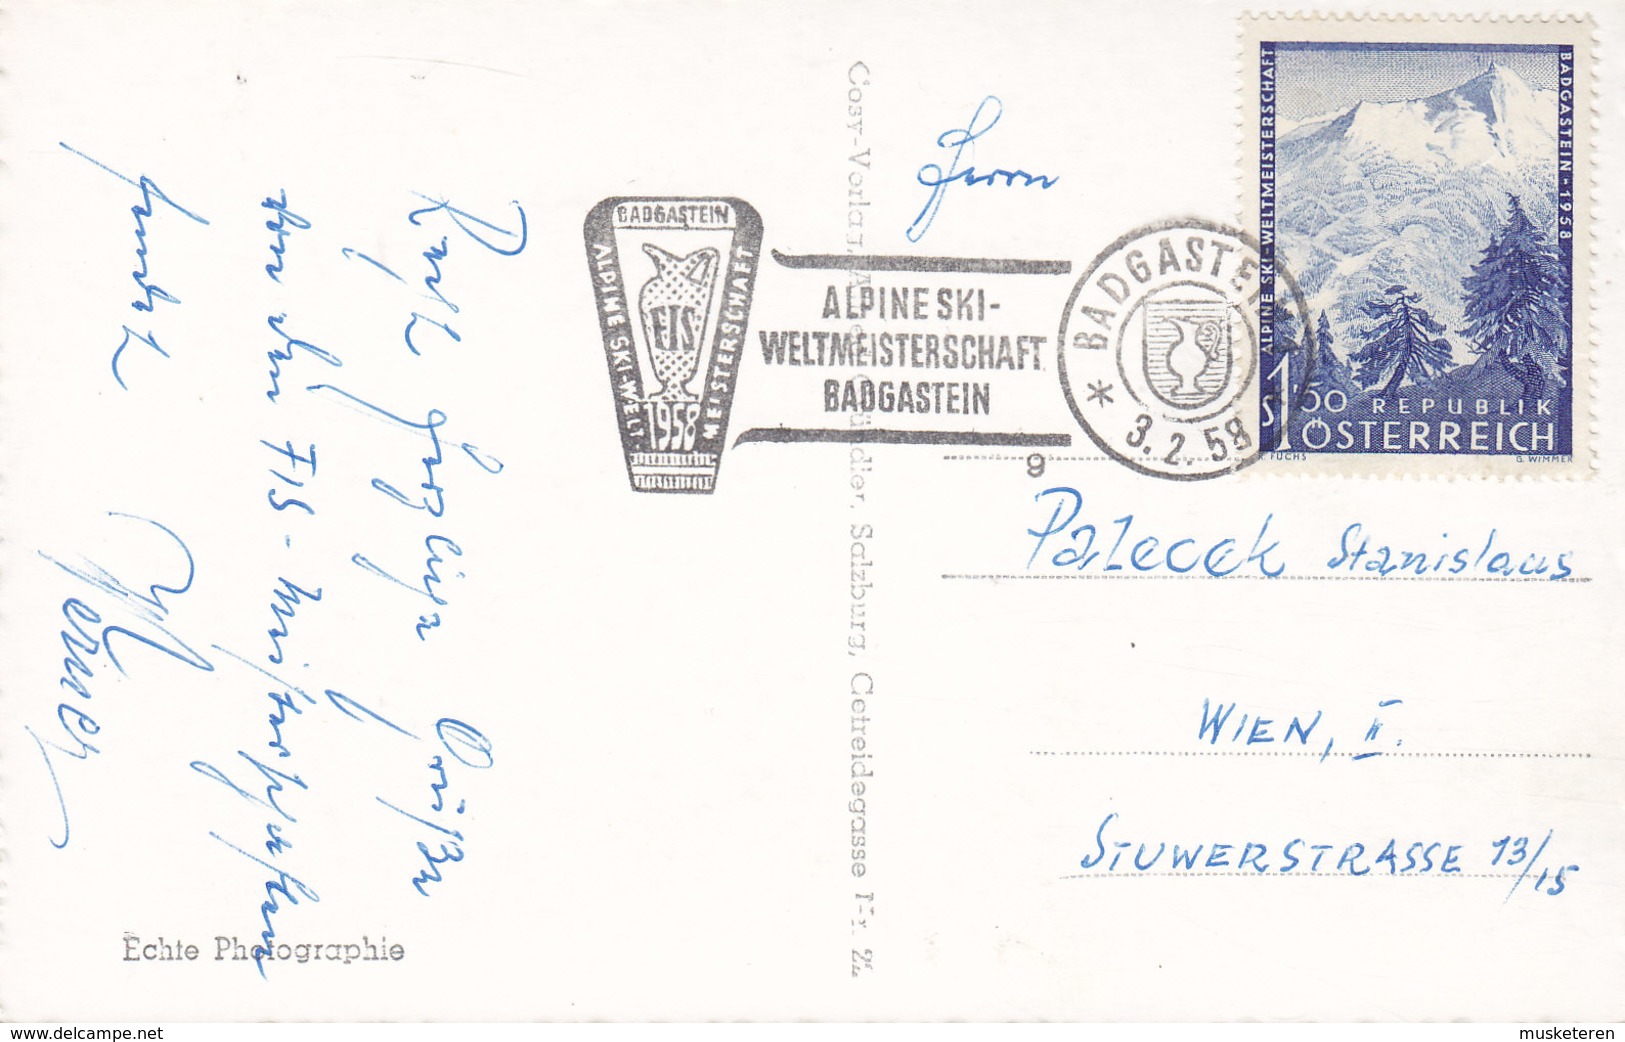 Recht herzliche Grüße
von den FIS-Meisterschaften
sendet
Werner
Echte Photographie
Cosy-Verlag, Alfred Gründler, Salzburg, Getreidegasse Nr. 22
BADGASTEIN
ALPINE SKI-WELT
MEISTERSCHAFT
FIS
1958
ALPINE SKI-
WELTMEISTERSCHAFT
BADGASTEIN
BADGASTEIN
* 3.2.58
9
ALPINE SKI-WELTMEISTERSCHAFT
BADGASTEIN-1958
S 1'50 REPUBLIK
ÖSTERREICH
R. FUCHS
G. WIMMER
Herrn
Palecek Stanislaus
WIEN, II.
STUWERSTRASSE 13/15
www.delcampe.net
musketeren